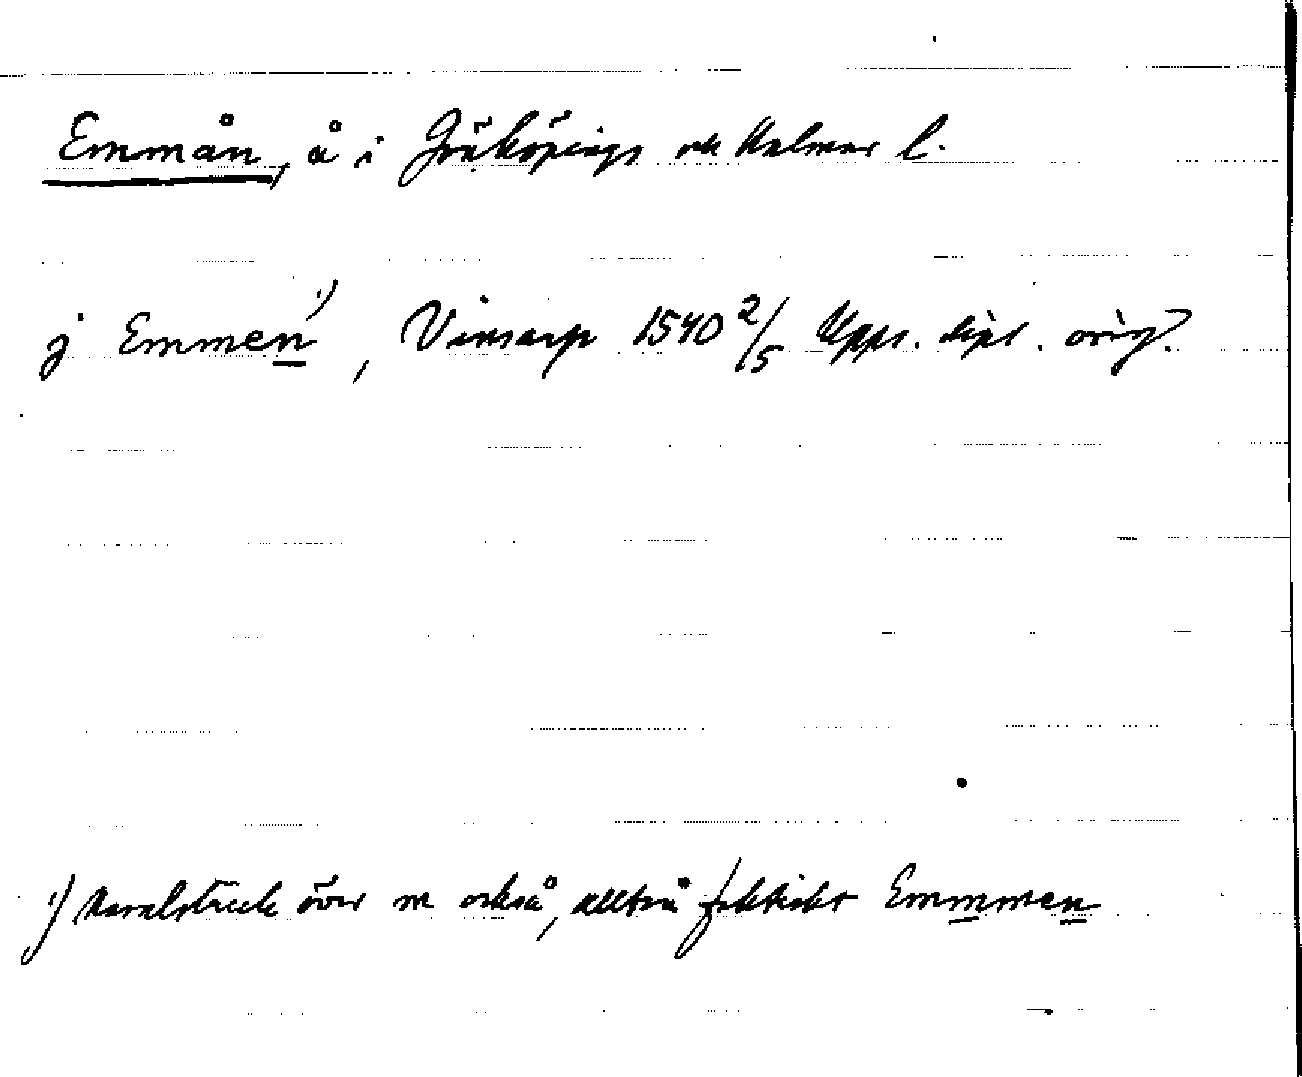 Emmån, å i Jönköpings och Kalmar l.
j Emmen ¹), Vinsarp 1540 2/5 Upps. dipl. orig.
¹) Nasalstreck över m också, alltså faktiskt Emmmen